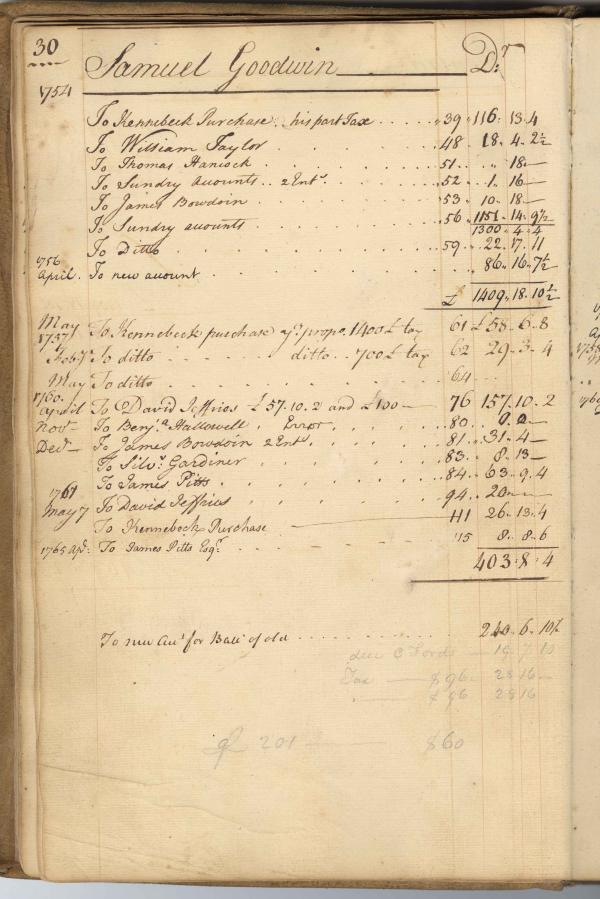 30
Samuel Goodwin Dr
1754
To Kennebeck Purchase his part Tax 39 116 13 4
To William Taylor 48 18 4 2½
To Thomas Hancock 51 18 —
To Sundry accounts 2 Ents 52 1 16 —
To James Bowdoin 53 10 18 —
To Sundry accounts 56 1151 14 9½
1300 4 4
To Ditto 59 22 17 11
1756
April To new account 86 16 7½
£ 1409 18 10½
May
1757 To Kennebeck purchase yr propo. 1400£ tax 61 £58 6 8
Feby To ditto ditto 700£ tax 62 29 3 4
May To ditto 64
1760
April To David Jeffries £57.10.2 and £100 — 76 157 10 2
Novr To Benja Hallowell Error 80
Decr To James Bowdoin 2 Ents 81 31 4 —
To Silvr Gardiner 83 8 13 —
To James Pitts 84 63 9 4
1761
May 7 To David Jeffries 94 20
To Kennebeck Purchase 111 26 13 4
1765 Apl To James Pitts Esqr 115 8 8 6
403 8 4
To new Acct for Balle of old 240 6 10½
19 7 10
Tax $96 28 16 —
$96 28 16
201 $60